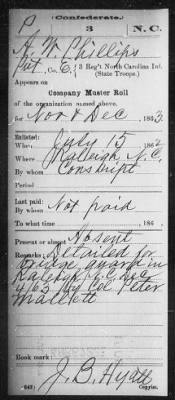 (Confederate.)
P 3 N.C.
A. W. Phillips
Pvt, Co. E, 3 Reg't North Carolina Inf.
(State Troops.)
Appears on
Company Muster Roll
of the organization named above,
for Nov & Dec, 1863
Enlisted:
When July 15, 1862
Where Raleigh N.C.
By whom Conscript
Period
Last paid:
By whom Not paid
To what time , 186 .
Present or absent Absent
Remarks: Detailed for
bridge guard in
Raleigh N.C. Dec
4/63 by Col. Peter
Mallett
Book mark:
J. B. Hyatt
(642) Copyist.